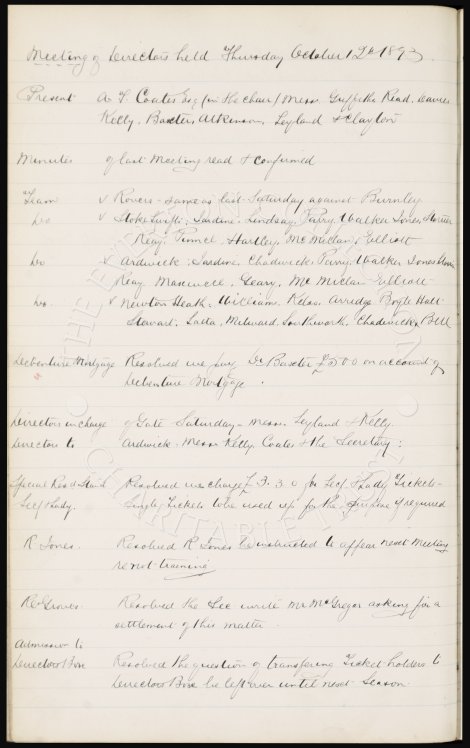 Meeting of Directors held Thursday October 12th 1893.
Present A. T. Coates Esq (in the chair) Messrs. Griffiths Read. Davies
Kelly, Baxter, Atkinson, Leyland & Clayton
Minutes of last Meeting read & confirmed
Team v Rovers - same as last Saturday against Burnley
Do v Stoke Swifts: Jardine: Lindsay. Parry. Walker Jones Storrier
Reay. Pinnel. Hartley. McMillan. Elliott
Do v Ardwick: Jardine. Chadwick Parry. Walker Jones
Reay. Maxwell. Geary. Mc Millan Elliott
Do v Newton Heath. Williams. Kelso. Arridge Boyle Holt
Stewart. Latta. Milward. Southworth. Chadwick & Bell
Debenture Mortgage Resolved we pay Dr Baxter £500 on account of
Debenture Mortgage.
Directors in charge of Gate Saturday - Messrs. Leyland & Kelly.
Directors to Ardwick. Messrs Kelly, Coates & the Secretary:
Special Res'd Stand Resolved we charge £ 3. 3. 0 for Secy & Lady Tickets -
Secy & Lady. Single Tickets to be used up for the purpose if required
R Jones. Resolved R Jones be instructed to appear next Meeting
re not training
Re Groves. Resolved the Sec write Mr McGregor asking for a
settlement of this matter.
Admission to
Directors Box Resolved the question of transfering Ticket holders to
Directors Box be left over until next Season.
THE
CHARITABLE